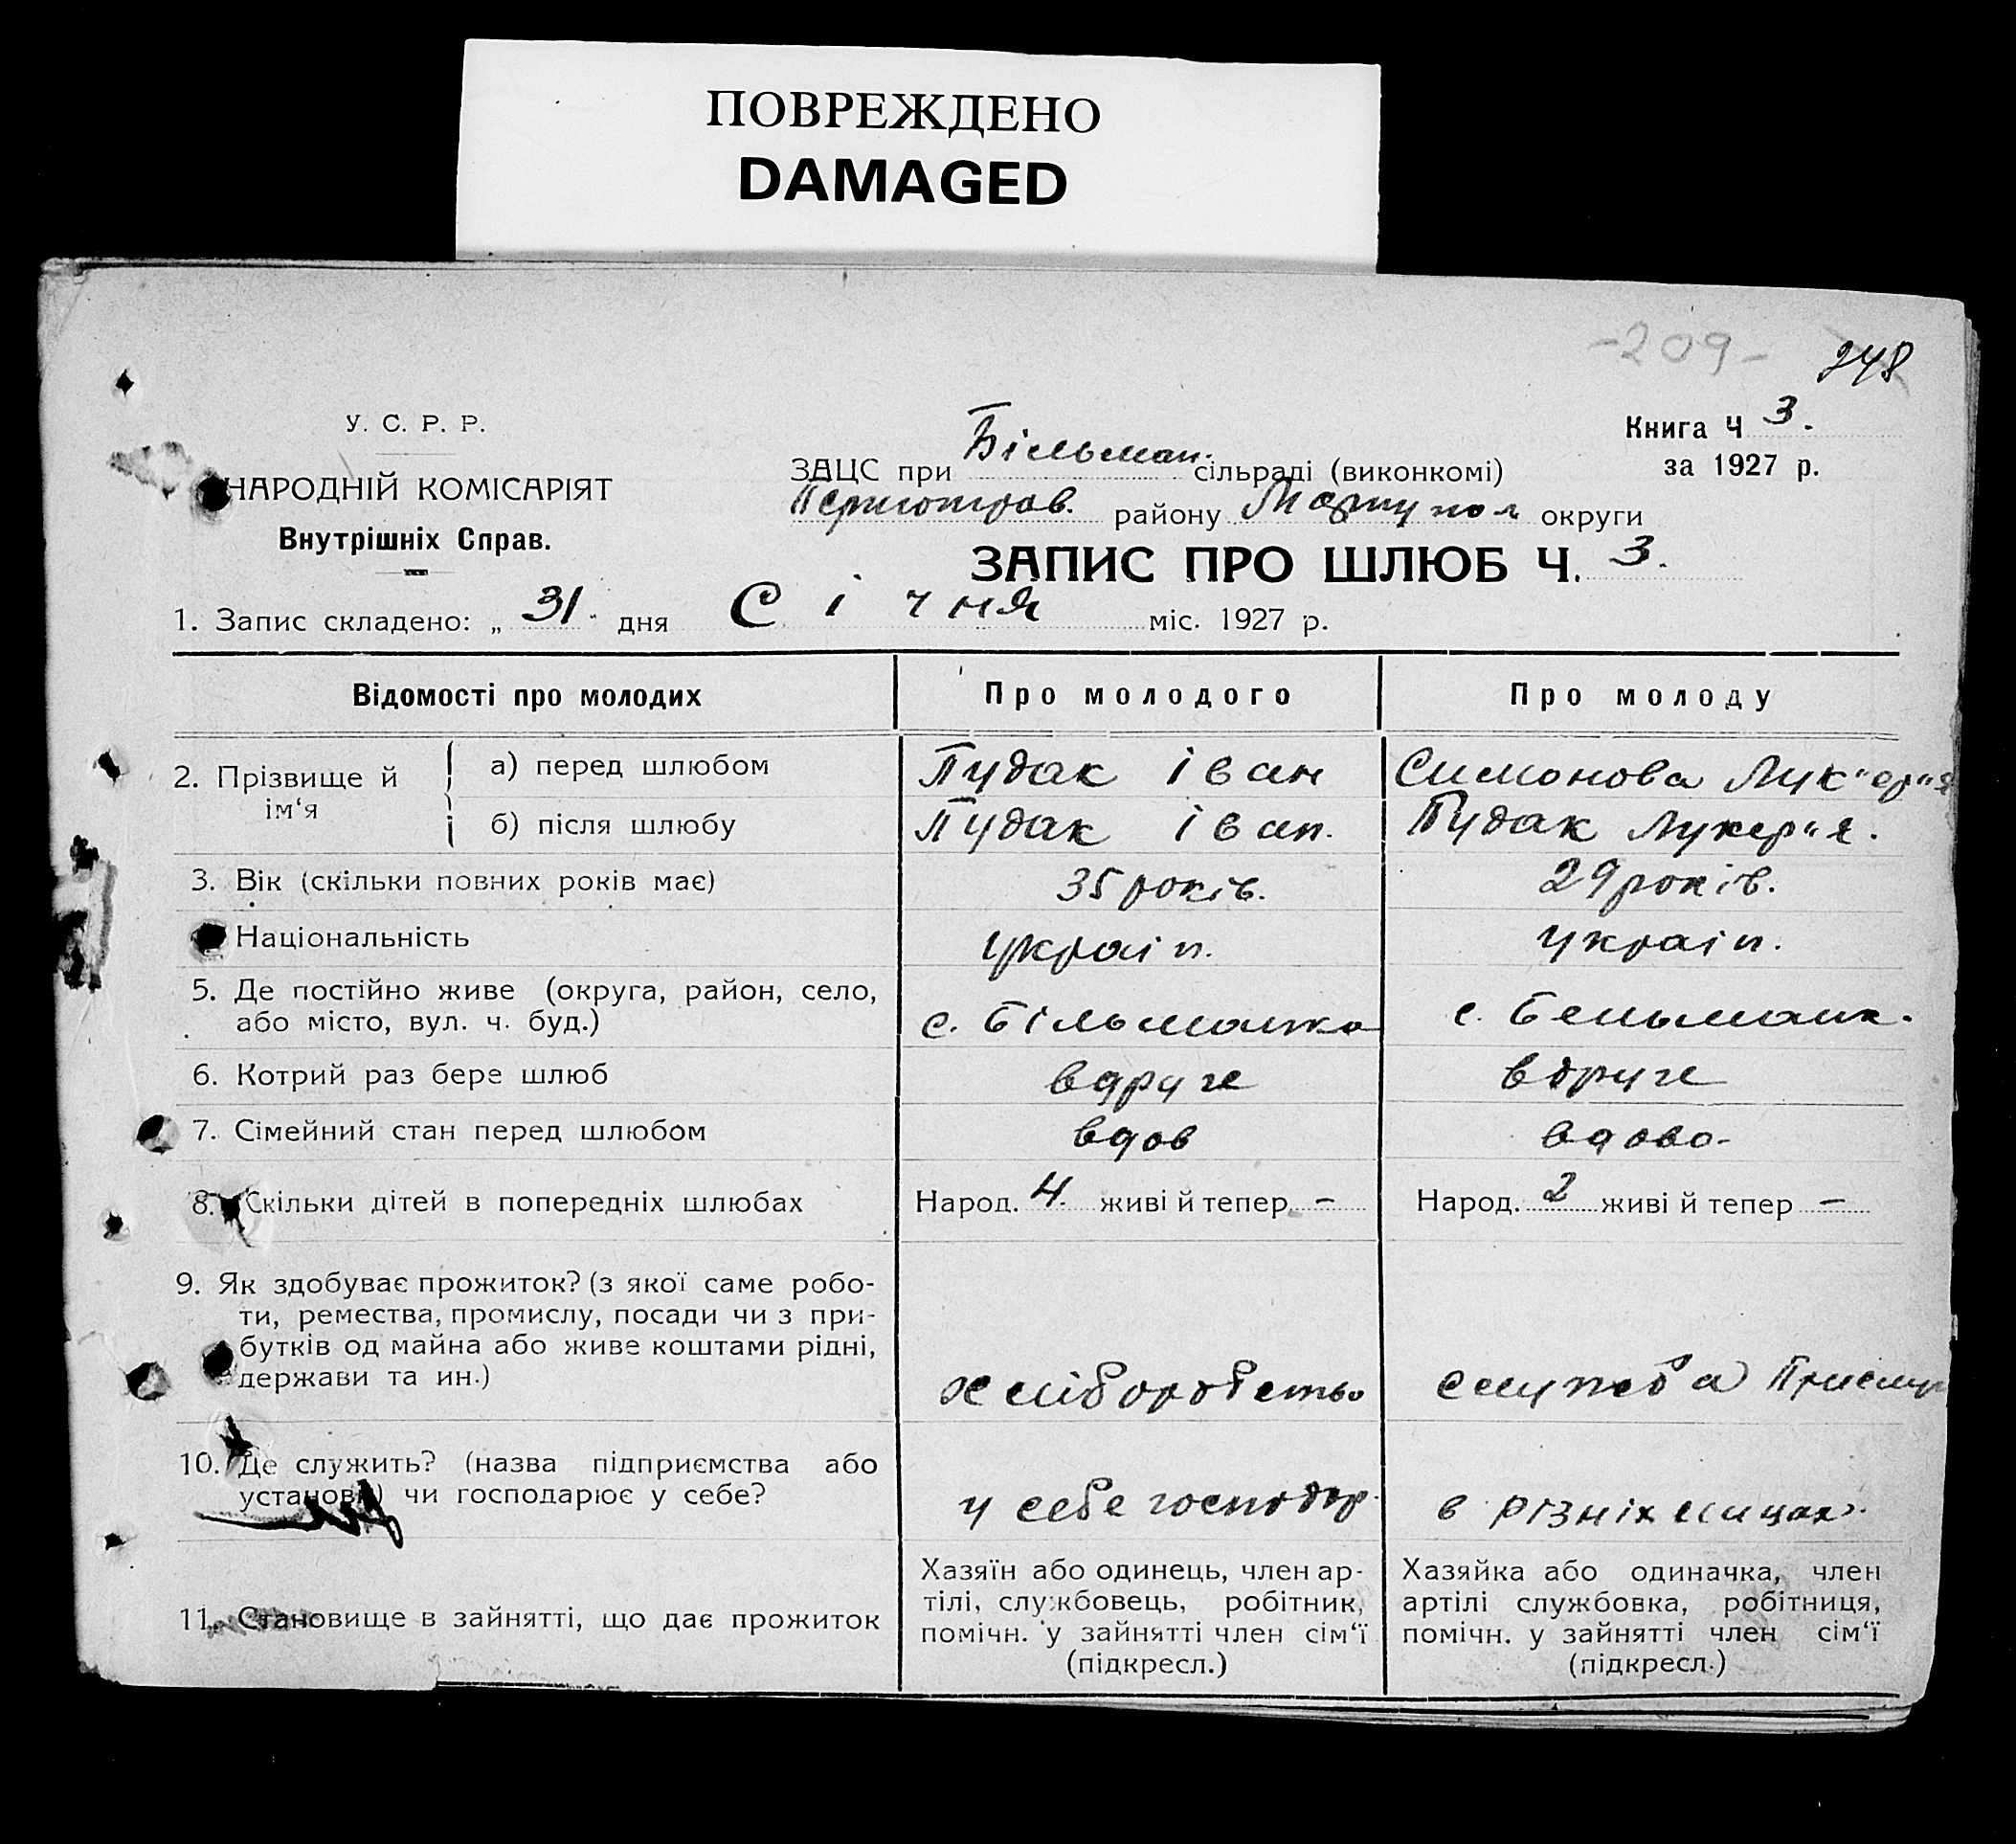 ПОВРЕЖДЕНО
DAMAGED
-209- 248
У. С. Р. Р.
НАРОДНІЙ КОМІСАРІЯТ
Внутрішніх Справ.
Книга Ч 3.
за 1927 р.
ЗАЦС при Більман. сільраді (виконкомі)
Першотрав. району Маріупол округи
ЗАПИС ПРО ШЛЮБ Ч. 3.
1. Запис складено: „ 31 дня Січня міс. 1927 р.
Відомості про молодих Про молодого Про молоду
2. Прізвище й ім‘я
а) перед шлюбом Пудак Іван Симонова Лук"ер"я
б) після шлюбу Пудак Іван. Пудак Лукер"я.
3. Вік (скільки повних років має) 35 років. 29 років.
Національність україн. україн.
5. Де постійно живе (округа, район, село,
або місто, вул. ч. буд.) с. Більманка с. Бельманк.
6. Котрий раз бере шлюб вдруге вдруге
7. Сімейний стан перед шлюбом вдов вдова
8. Скільки дітей в попередніх шлюбах Народ. 4. живі й тепер – Народ. 2 живі й тепер –
9. Як здобуває прожиток? (з якої саме робо-
ти, ремества, промислу, посади чи з при-
бутків од майна або живе коштами рідні,
держави та ин.) хліборобство служба Прислуг
10. Де служить? (назва підприємства або
установи) чи господарює у себе? у себе господар. в різніх лицах.
11. Становище в зайнятті, що дає прожиток
Хазяїн або одинець, член ар-
тілі, службовець, робітник,
помічн. у зайнятті член сім‘ї
(підкресл.)
Хазяйка або одиначка, член
артілі службовка, робітниця,
помічн. у зайнятті член сім‘ї
(підкресл.)